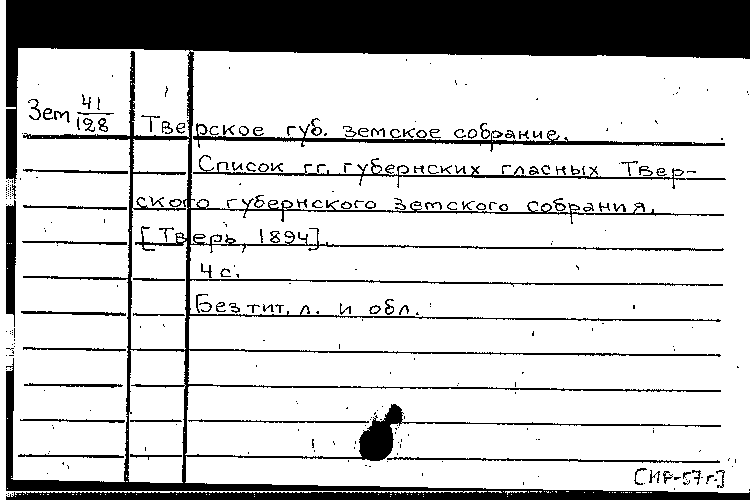 Зем 41/128
Тверское губ. земское собрание.
Список гг. губернских гласных Твер-
ского губернского земского собрания.
[Тверь, 1894].
4 с.
Без тит. л. и обл.
[ИР-57г.]